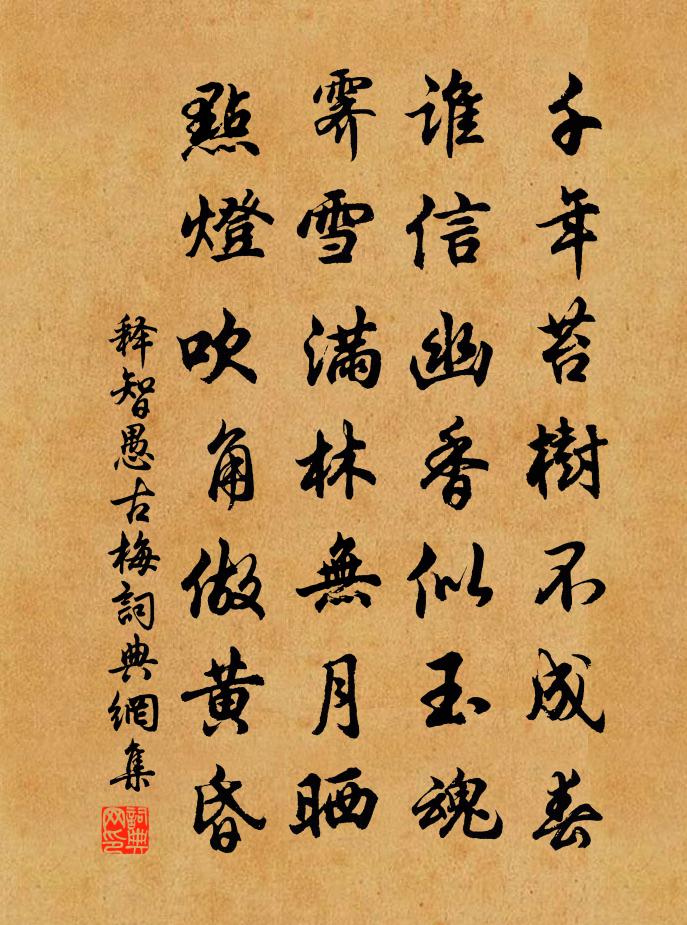 千年苔樹不成春
誰信幽香似玉魂
霽雪满林無月晒
點燈吹角做黄昏
释智愚古梅詞典網集
詞典网印